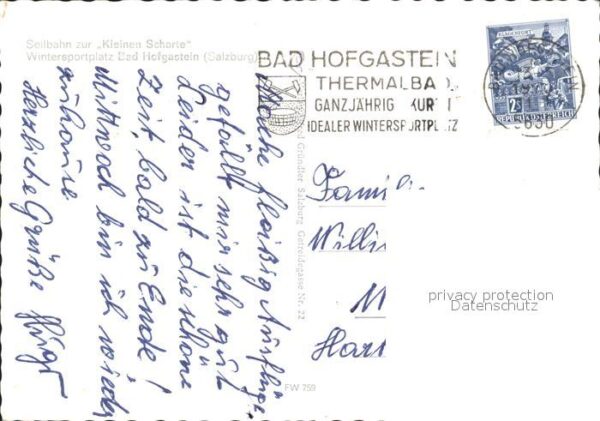 Seilbahn zur „Kleinen Scharte"
Wintersportplatz Bad Hofgastein (Salzburg)
BAD HOFGASTEIN
THERMALBAD
GANZJÄHRIG KUR
IDEALER WINTERSPORTPLATZ
2S
REPUBLIK ÖSTERREICH
5630
Mache fleißig Ausflüge,
gefällt mir sehr gut.
Leider ist die schöne
Zeit bald zu Ende!
Mittwoch bin ich wieder
zuhause.
Herzliche Grüße
Gründler Salzburg Getreidegasse Nr. 22
FW 759
Famili
Willi
M
Har
privacy protection
Datenschutz